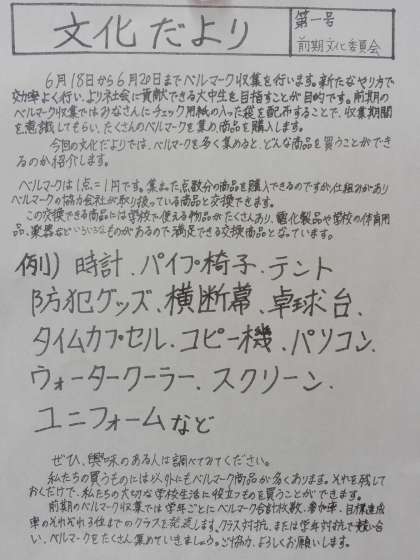 文化だより
第一号
前期文化委員会
6月18日から6月20日までベルマーク収集を行います。新たなやり方で
効率よく行い、より社会に貢献できる大中生を目指すことが目的です。前期の
ベルマーク収集ではみなさんにチェック用紙の入った袋を配布することで、収集期間
を意識してもらい、たくさんのベルマークを集め商品を購入します。
今回の文化だよりでは、ベルマークを多く集めると、どんな商品を買うことができ
るのか紹介します。
ベルマークは1点=1円です。集まった点数分の商品を購入できるのですが、仕組みがあり
ベルマークの協力会社が取り扱っている商品と交換できます。
この交換できる商品には学校で使える物品がたくさんあり、電化製品や学校の体育用
品、楽器などいろいろなものがあるので満足できる交換商品となっています。
例) 時計、パイプ椅子、テント
防犯グッズ、横断幕、卓球台、
タイムカプセル、コピー機、パソコン、
ウォータークーラー、スクリーン、
ユニフォームなど
ぜひ、興味のある人は調べてみてください。
私たちの買うものには以外にもベルマーク商品が多くあります。それを残して
おくだけで、私たちの大切な学校生活に役立つものを買うことができます。
前期のベルマーク収集では学年ごとにベルマーク合計枚数、参加率、目標達成
率のそれぞれ3位までのクラスを発表します。クラス対抗、または学年対抗で競い合
い、ベルマークをたくさん集めていきましょう。ご協力、よろしくお願いします。